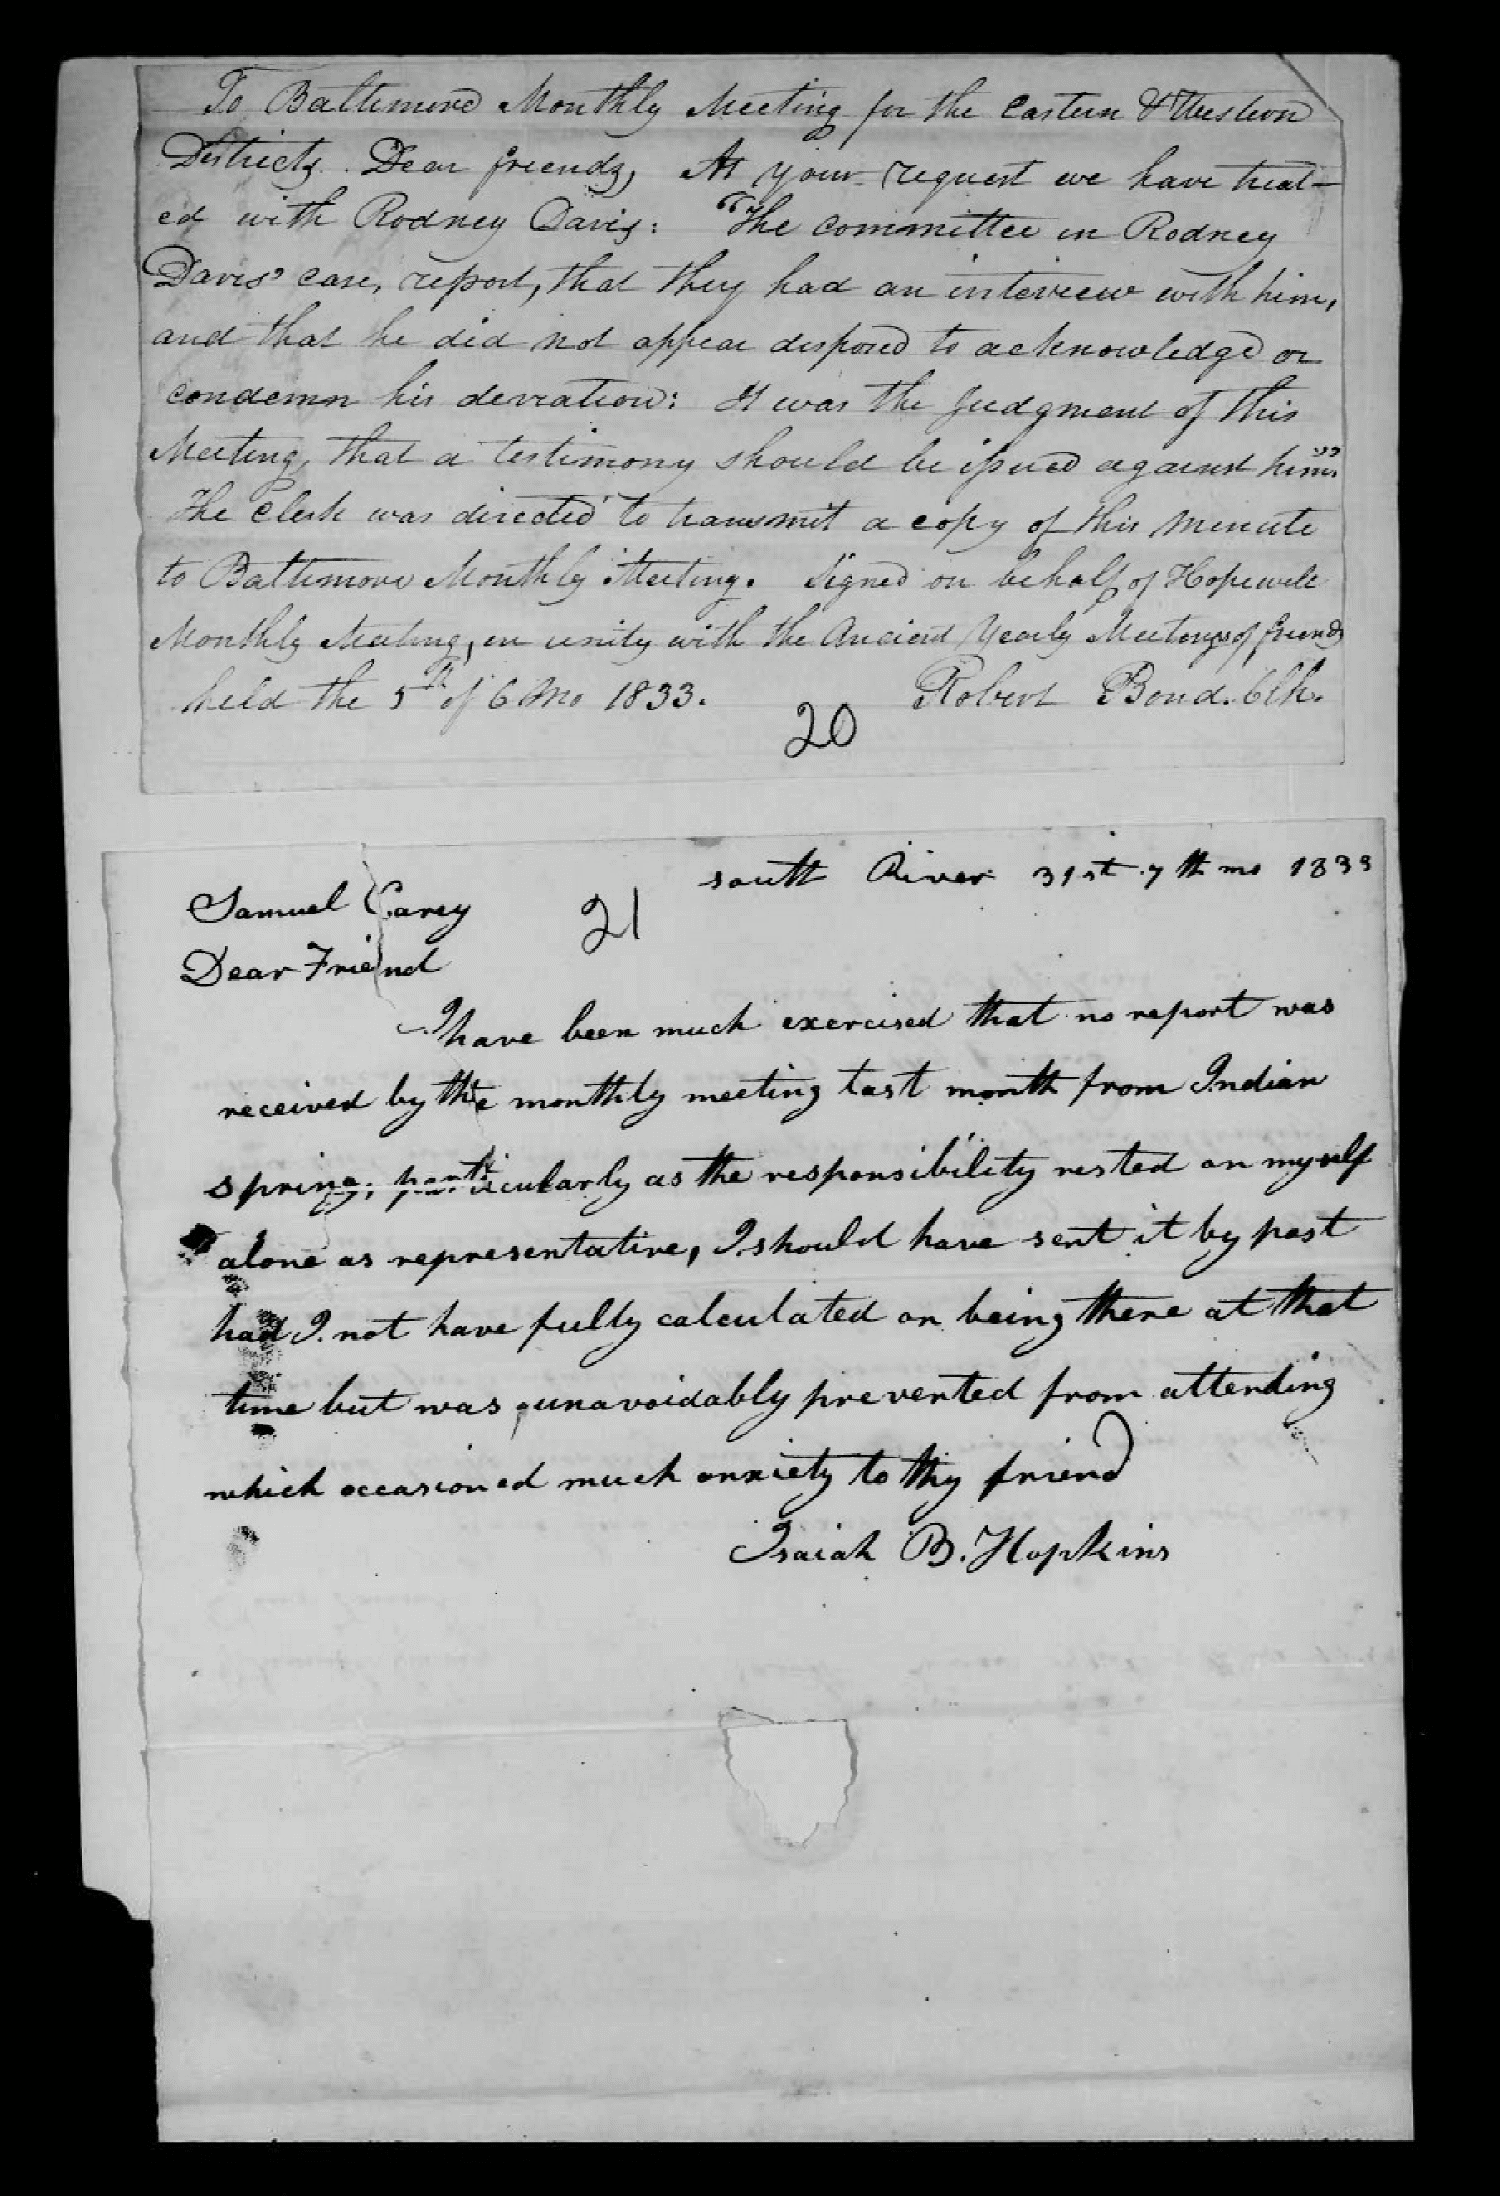 To Baltimore Monthly Meeting for the Eastern & Western
Districts. Dear friends, At your request we have treat-
ed with Rodney Davis: "The committee in Rodney
Davis' case, report, that they had an interview with him,
and that he did not appear disposed to acknowledge or
condemn his deviation: It was the judgment of this
Meeting, that a testimony should be issued against him"
The Clerk was directed to transmit a copy of this minute
to Baltimore Monthly Meeting. Signed on behalf of Hopewell
Monthly Meeting, in unity with the Ancient Yearly Meetings of friends
held the 5th of 6 Mo 1833. Robert Bond. Clk.
20
south River 31st 7th mo 1833
Samuel Carey
21
Dear Friend
I have been much exercised that no report was
received by the monthly meeting last month from Indian
spring, particularly as the responsibility rested on myself
alone as representative, I should have sent it by post
had I not have fully calculated on being there at that
time but was unavoidably prevented from attending
which occasioned much anxiety to thy friend
Isaiah B. Hopkins